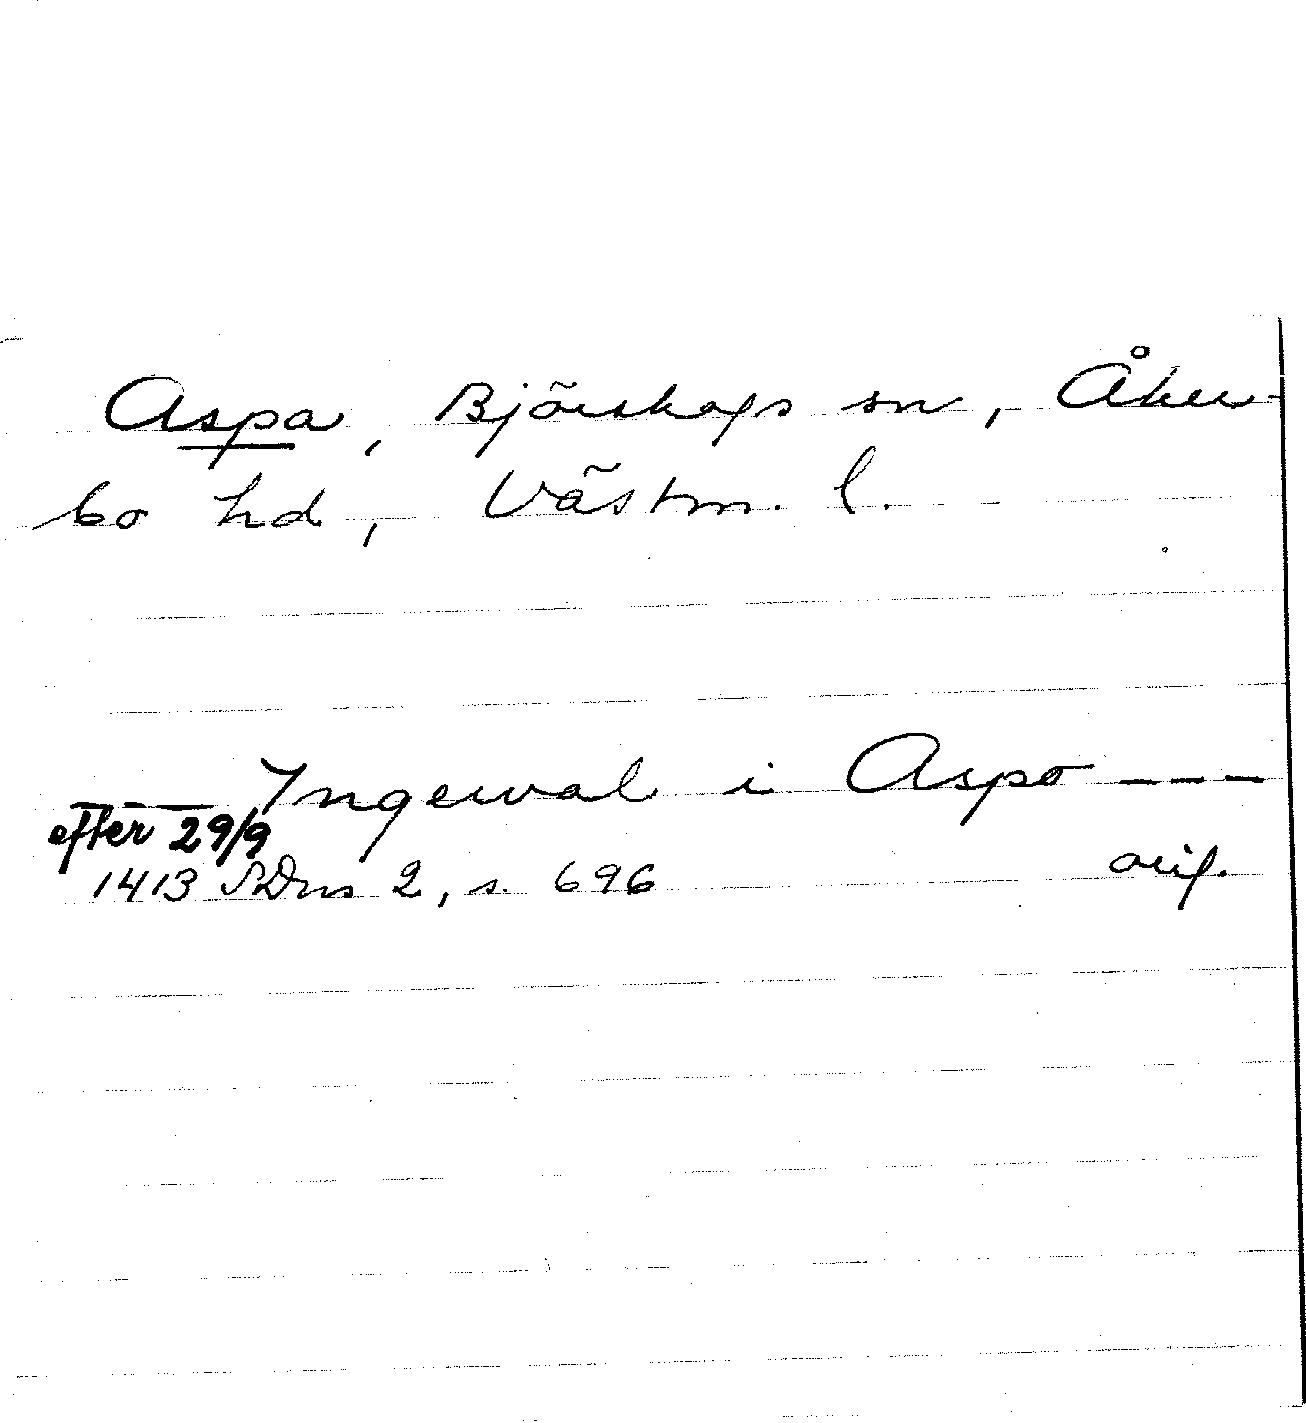 Aspa, Björskogs sn, Åker-
bo hd, Västm. l.
--- Ingewal i Aspo ---
efter 29/9
1413 SDns 2, s. 696 orig.